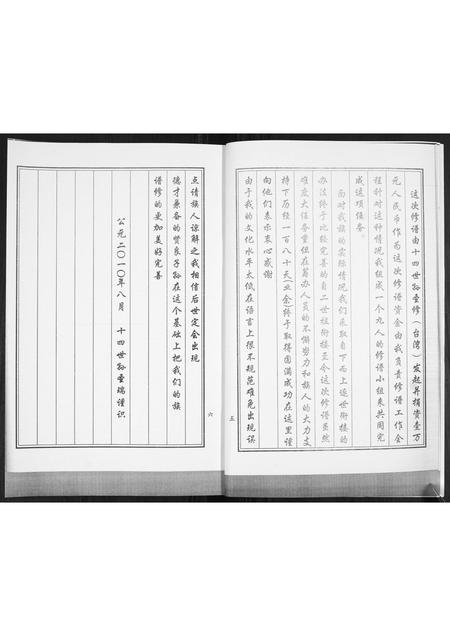 这次修谱由十四世孙圣修（台湾）发起并捐资壹万
元人民币作为这次修谱资金由我负责修谱工作会
程针对这种情况我组成一个九人的修谱小组来共同完
成这项任务。
面对我族的实际情况我们采取自下而上逐世衔接的
办法终于比较完善的自二世祖衔接至今这次修谱虽然
难度大任务重但在筹办人员的不懈努力和族人的大力支
持下历经一百八十天(业余)终于取得圆满成功在这里谨
向他们表示衷心感谢
由于我的文化水平太低在语言上很不规范难免出现误
五
点请族人谅解之我相信后世定会出现
德才兼备的贤良子孙在这个基础上把我们的族
谱修的更加美好完善
公元二〇一〇年八月 十四世孙圣瑞谨识
六